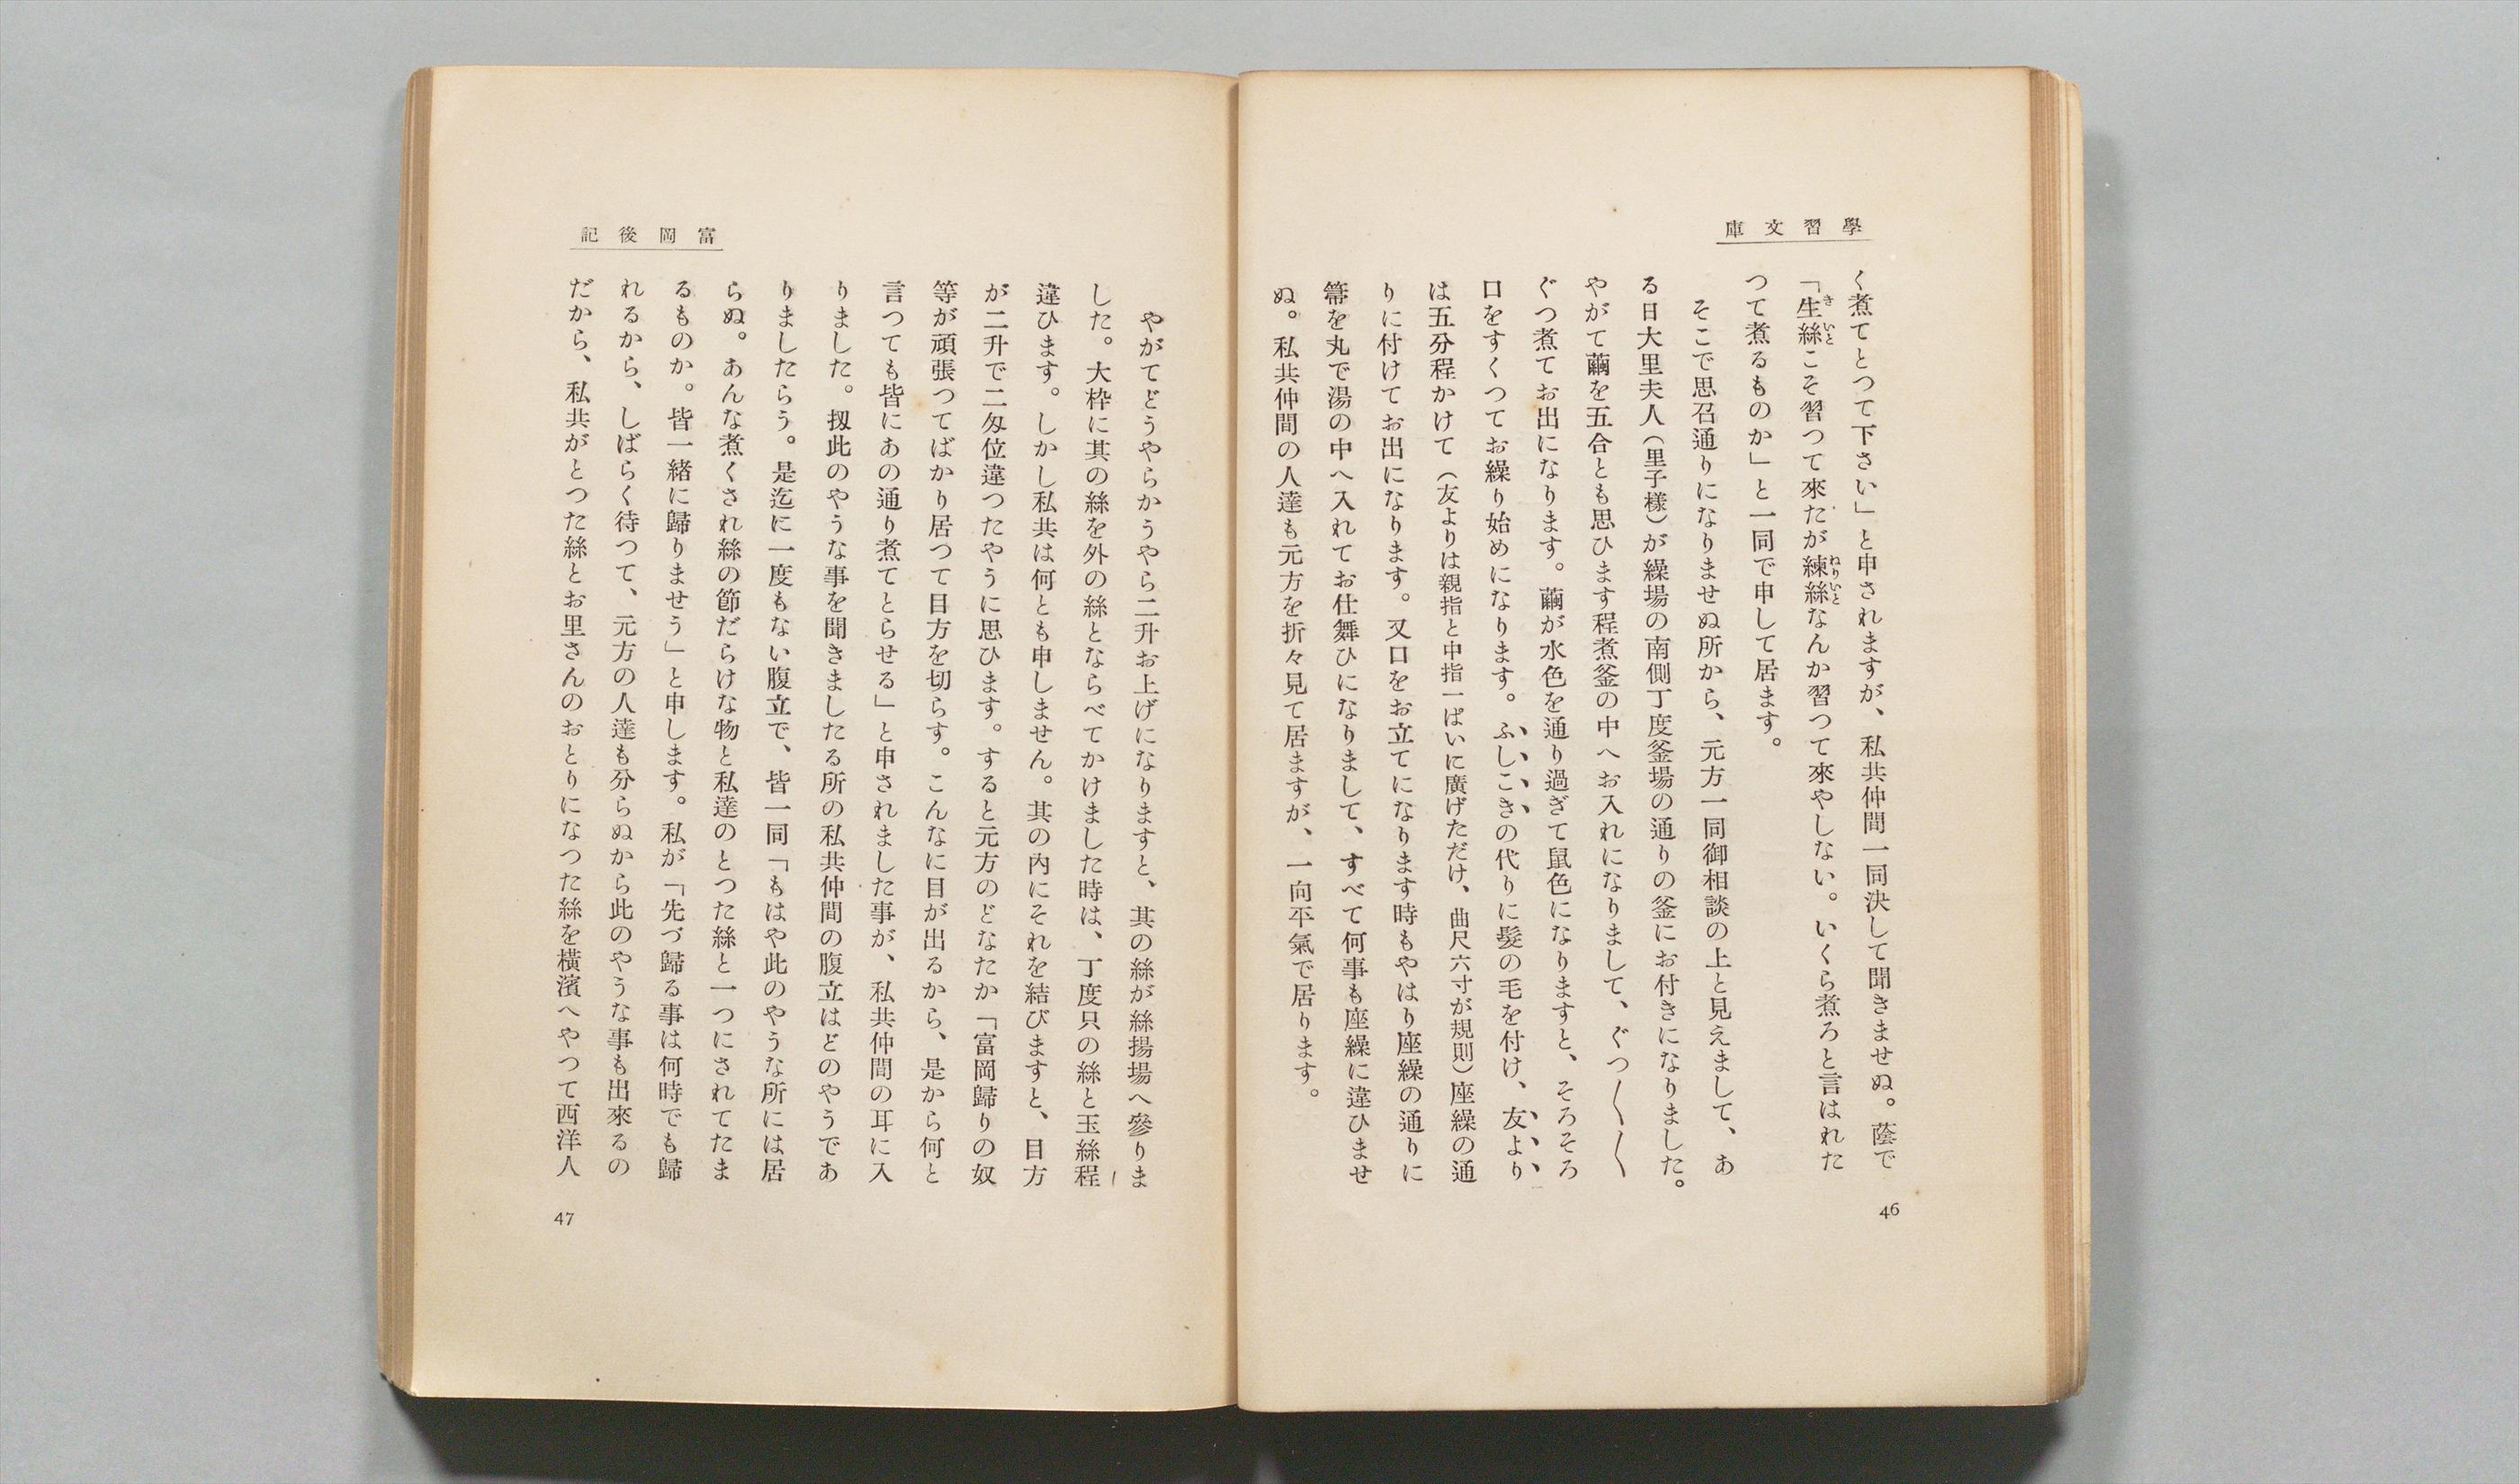 學習文庫
く煮てとつて下さい」と申されますが、私共仲間一同決して聞きませぬ。蔭で
「生絲こそ習つて來たが練絲なんか習つて來やしない。いくら煮ろと言はれた
き いと
ねりいと
つて煮るものか」と一同で申して居ます。
そこで思召通りになりませぬ所から、元方一同御相談の上と見えまして、あ
る日大里夫人（里子樣）が繰場の南側丁度釜場の通りの釜にお付きになりました。
やがて繭を五合とも思ひます程煮釜の中へお入れになりまして、ぐつ〱〱
ぐつ煮てお出になります。繭が水色を通り過ぎて鼠色になりますと、そろそろ
口をすくつてお繰り始めになります。ふしこきの代りに髮の毛を付け、友より
は五分程かけて（友よりは親指と中指一ぱいに廣げただけ、曲尺六寸が規則）座繰の通
りに付けてお出になります。又口をお立てになります時もやはり座繰の通りに
箒を丸で湯の中へ入れてお仕舞ひになりまして、すべて何事も座繰に違ひませ
ぬ。私共仲間の人達も元方を折々見て居ますが、一向平氣で居ります。
46
富岡後記
やがてどうやらかうやら二升お上げになりますと、其の絲が絲揚場へ參りま
した。大枠に其の絲を外の絲とならべてかけました時は、丁度只の絲と玉絲程
違ひます。しかし私共は何とも申しません。其の內にそれを結びますと、目方
が二升で二匁位違つたやうに思ひます。すると元方のどなたか「富岡歸りの奴
等が頑張つてばかり居つて目方を切らす。こんなに目が出るから、是から何と
言つても皆にあの通り煮てとらせる」と申されました事が、私共仲間の耳に入
りました。扨此のやうな事を聞きましたる所の私共仲間の腹立はどのやうであ
りましたらう。是迄に一度もない腹立で、皆一同「もはや此のやうな所には居
らぬ。あんな煮くされ絲の節だらけな物と私達のとつた絲と一つにされてたま
るものか。皆一緒に歸りませう」と申します。私が「先づ歸る事は何時でも歸
れるから、しばらく待つて、元方の人達も分らぬから此のやうな事も出來るの
だから、私共がとつた絲とお里さんのおとりになつた絲を橫濱へやつて西洋人
47